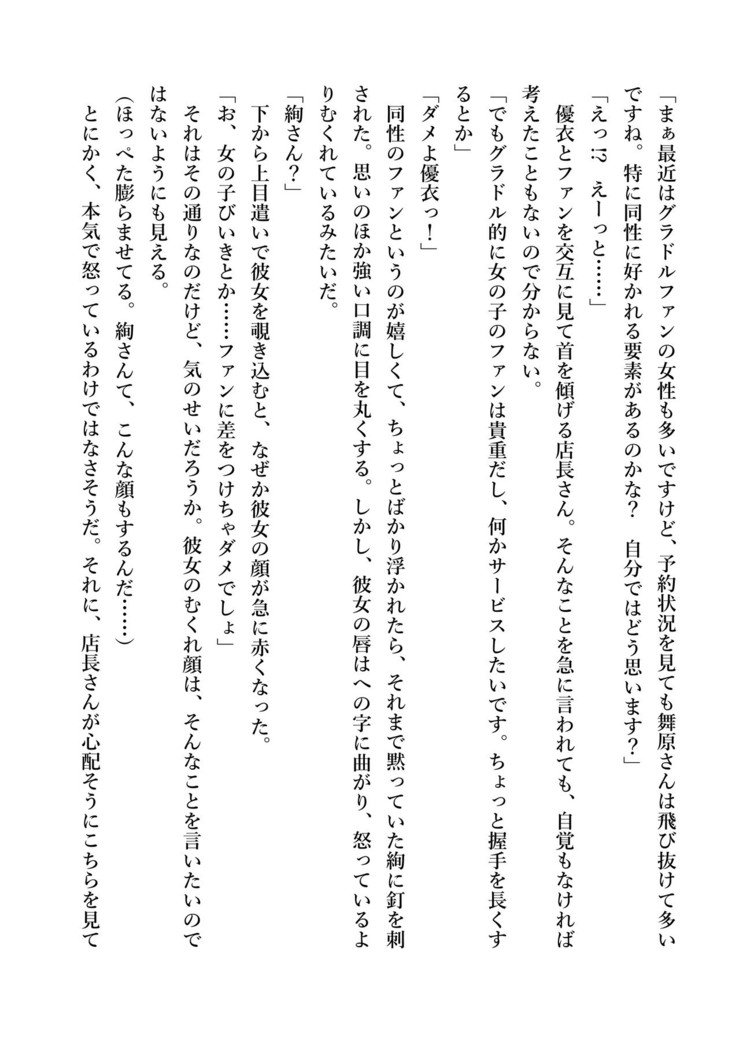 「まぁ最近はグラドルファンの女性も多いですけど、予約状況を見ても舞原さんは飛び抜けて多い
ですね。特に同性に好かれる要素があるのかな？　自分ではどう思います？」
「えっ!?　えーっと……」
　優衣とファンを交互に見て首を傾げる店長さん。そんなことを急に言われても、自覚もなければ
考えたこともないので分からない。
「でもグラドル的に女の子のファンは貴重だし、何かサービスしたいです。ちょっと握手を長くす
るとか」
「ダメよ優衣っ！」
　同性のファンというのが嬉しくて、ちょっとばかり浮かれたら、それまで黙っていた絢に釘を刺
された。思いのほか強い口調に目を丸くする。しかし、彼女の唇はへの字に曲がり、怒っているよ
りむくれているみたいだ。
「絢さん？」
　下から上目遣いで彼女を覗き込むと、なぜか彼女の顔が急に赤くなった。
「お、女の子びいきとか……ファンに差をつけちゃダメでしょ」
　それはその通りなのだけど、気のせいだろうか。彼女のむくれ顔は、そんなことを言いたいので
はないようにも見える。
（ほっぺた膨らませてる。絢さんて、こんな顔もするんだ……）
　とにかく、本気で怒っているわけではなさそうだ。それに、店長さんが心配そうにこちらを見て